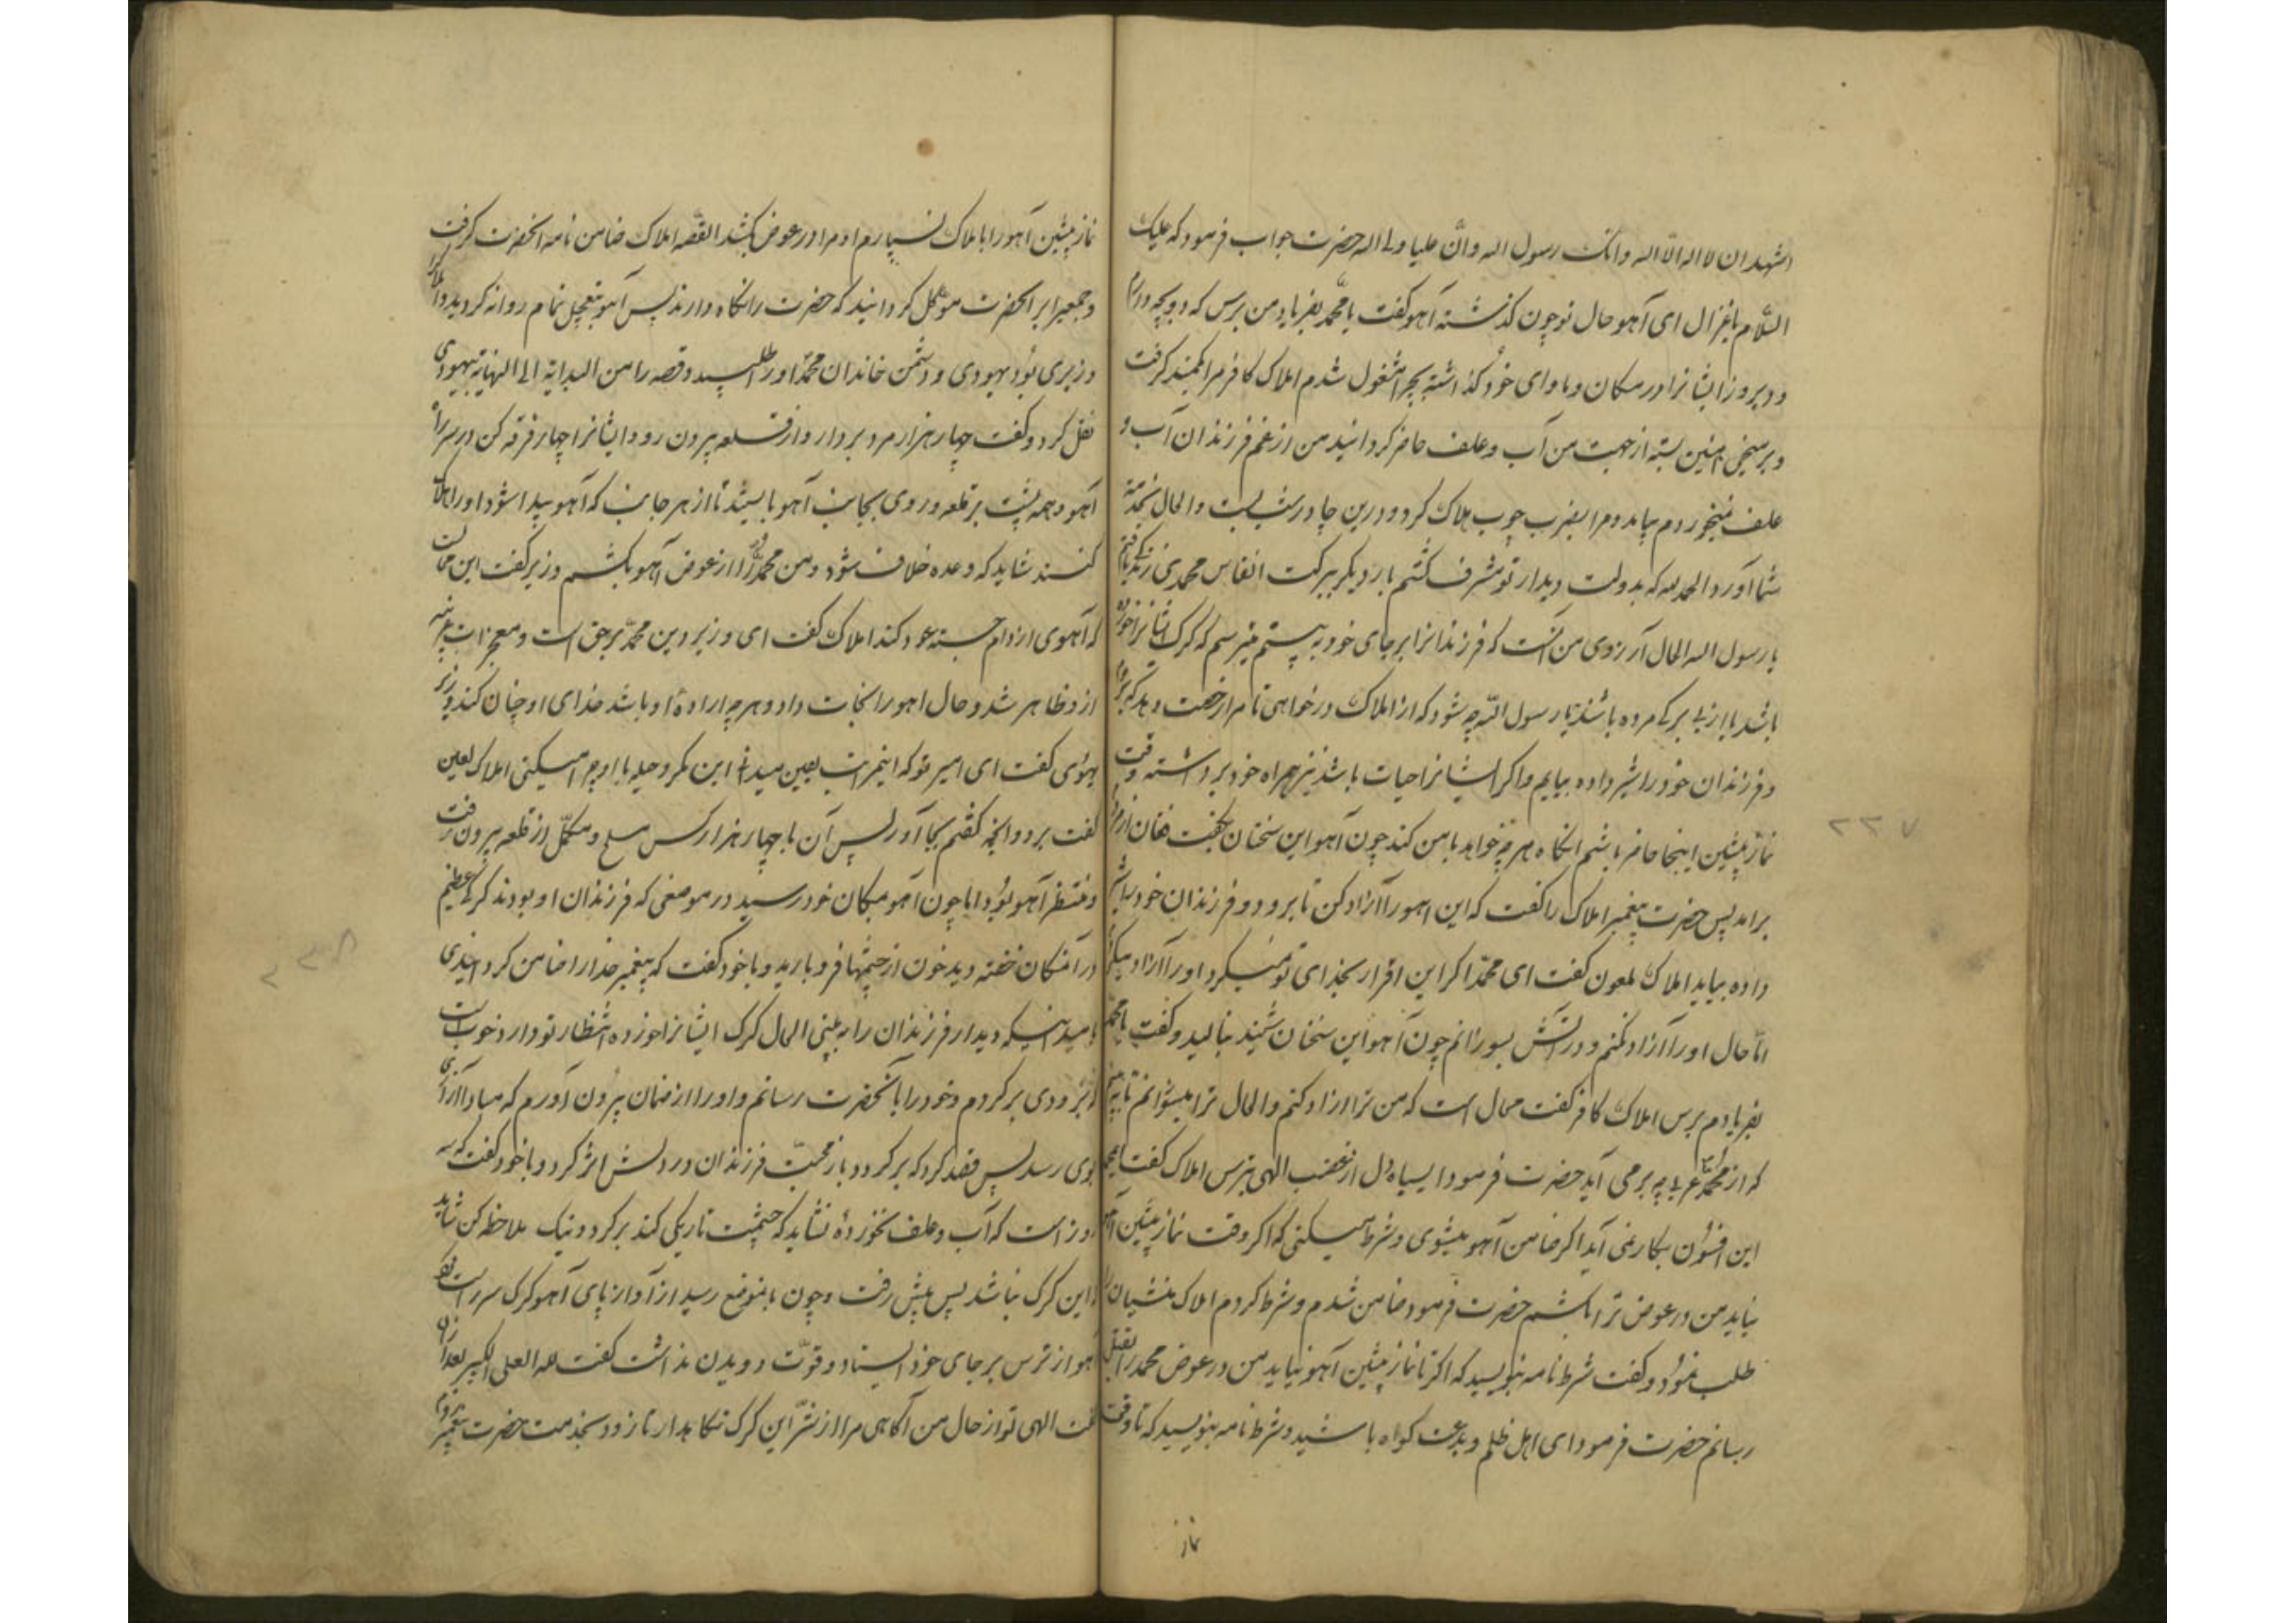 اشهد ان لا اله الا الله وانک رسول الله وانّ علیا ولی الله حضرت جواب فرمود که علیک
السّلام یا غزال ای آهو حال تو چون کذشته آهو کفت یا محمّد بفریاد من برس که دو بچه دارم
و دیروز ایشانرا در مکان و ماوای خود کذاشته بچرا مشغول شدم املاک کافر مرا بکمند کرفت
و بر میخ آهنین بسته از جهت من آب و علف حاضر کردانید من از غم فرزندان آب و
علف نمیخوردم بیامد و مرا بضرب چوب هلاک کرد و درین چادر شب بست و الحال بخدمت
شما آورد الحمد لله که بدولت دیدار تو مشرف کشتم بار دیکر ببرکت انفاس محمدی زندکی یافتم
یا رسول الله الحال آرزوی من آنست که فرزندانرا بر جای خود به بینم میترسم که کرک ایشانرا خورده
باشد یا از بی برکی مرده باشند یا رسول الله چه شود که از املاک درخواهی تا مرا رخصت دهد که بروم
و فرزندان خود را شیر داده بیایم و اکر ایشانرا حیات باشد نیز همراه خود برداشته وقت
نماز پیشین اینجا حاضر باشم آنکاه هر چه خواهد با من کند چون آهو این سخنان بکفت فغان از مردم
برآمد پس حضرت پیغمبر املاک را کفت که این آهو را آزاد کن تا برود و فرزندان خود را شیر
داده بیاید املاک ملعون کفت ای محمّد اکر این اقرار بخدای تو نمیکرد او را آزاد میکردم
امّا حال او را آزاد نکنم و در آتش بسوزانم چون آهو این سخنان شنید بنالید و کفت یا محمّد
بفریادم برس املاک کافر کفت محال است که من ترا آزاد کنم و الحال ترا میسوزانم تا ببینم
که از محمّد عربی چه بر می آید حضرت فرمود ای سیاه دل از غضب الهی بترس املاک کفت ای محمد
این افسون بکار نمی آید اکر ضامن آهو میشوی و شرط میکنی که اکر وقت نماز پیشین آهو
نیاید من در عوض ترا بکشم حضرت فرمود ضامن شدم و شرط کردم املاک منشیان را
طلب نمود و کفت شرط نامه بنویسید که اکر تا نماز پیشین آهو نیاید من در عوض محمد را بقتل
رسانم حضرت فرمود ای اهل ظلم و بدعت کواه باشید و شرط نامه بنویسید که تا وقت
نماز
نماز پیشین آهو را باملاک نسپارم او مرا در عوض بکشد القصّه املاک ضامن نامه آنحضرت کرفت
و جمعیرا بر آنحضرت موکل کردانید که حضرت را نکاه دارند پس آهو بتعجیل تمام روانه کردید و املاک را
وزیری بود یهودی و دشمن خاندان محمّد او را طلبید و قصه را من البدایة الی النهایة بیهودی
نقل کرد و کفت چهار هزار مرد بردار و از قلعه بیرون رو و ایشانرا چهار فرقه کن در سر راه
آهو و همه پشت بر قلعه و روی بجانب آهو بایستند تا از هر جانب که آهو پیدا شود او را هلاک
کنند شاید که وعده خلاف شود و من محمّد را در عوض آهو بکشم وزیر کفت این محالست
که آهوی از دام جسته عود کند املاک کفت ای وزیر دین محمّد بر حق است و معجزات غریبه
ازو ظاهر شد و حال آهو را نجات داد و هر چه ارادهٔ او باشد خدای او چنان کند وزیر
یهودی کفت ای امیر تو که اینمراتب یقین میدانی این مکر و حیله با او چرا میکنی املاک لعین
کفت برو و آنچه کفتم بجا آور پس آن با چهار هزار کس مسلح و مکمّل از قلعه بیرون رفت
و منتظر آهو بود اما چون آهو بمکان خود رسید در موضعی که فرزندان او بودند کرک عظیم
در آنمکان خفته دید خون از چشمها فرو بارید و با خود کفت که پیغمبر خدا را ضامن کردانیدی
بامید اینکه دیدار فرزندان را به بینی الحال کرک ایشانرا خورده انتظار تو دارد خوب آنست
که بزودی برکردم و خود را بآنحضرت رسانم و او را از ضمان بیرون آورم که مبادا آزاری
بوی رسد پس قصد کرد که برکردد باز محبّت فرزندان در دلش اثر کرد و با خود کفت که سه
روز است که آب و علف نخورده نشاید که چشمت تاریکی کند برکرد و نیک ملاحظه کن شاید
که این کرک نباشد پس پیش رفت و چون بآنموضع رسید از آواز پای آهو کرک سر راست کرد
آهو از ترس بر جای خود ایستاد و قوّت دویدن نداشت کفت لله العلی الکبیر بعد از آن
کفت الهی تو از حال من آکاهی مرا از شرّ این کرک نکاهدار تا زود بخدمت حضرت پیغمبر روم